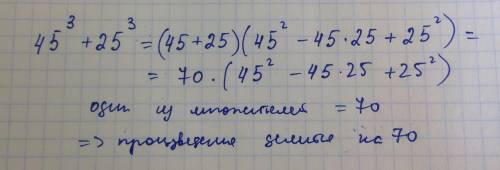 45³ + 25³ = (45 + 25)(45² − 45·25 + 25²) =
= 70·(45² − 45·25 + 25²)
один из множителей = 70
=> произведение делится на 70